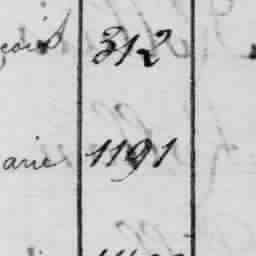 çois 312
arie 1191